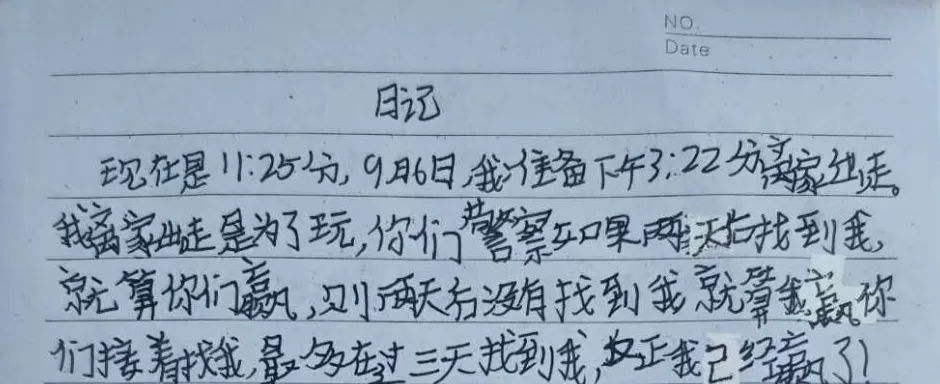 NO.
Date
日记
现在是11:25分,9月6日,我准备下午3:22分离家出走。
我离家出走是为了玩,你们警察如果两天后找到我,
就算你们赢,则两天后没有找到我就算我赢你
们接着找我,最多在过三天找到我,反正我已经赢了!